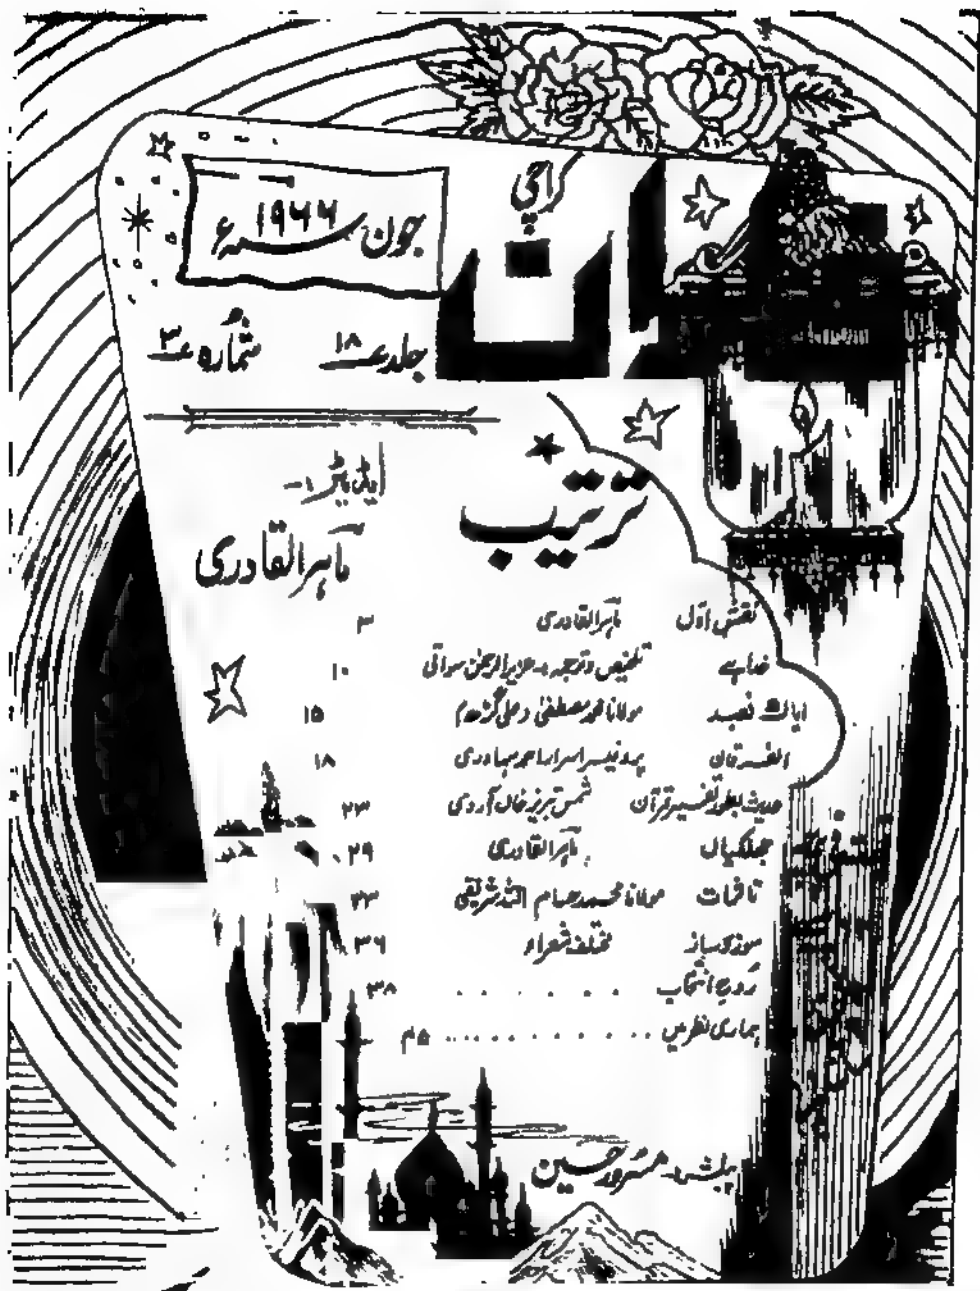 کراچی
جون ۱۹۶۶ سنہ ء
جلد ۱۸ شمارہ ۳
ایڈیٹر :-
ماہر القادری
ترتیب
نقش اول ماہر القادری ۳
تلخیص و ترجمہ :- عزیز الرحمٰن سواتی ۱۰
ایاک نعبد مولانا محمد مصطفیٰ ۱۵
الفرقان پروفیسر اسرار احمد سہاوری ۱۸
حدیث بطور تفسیر قرآن شمس تبریز خاں آروی ۲۳
جھلکیاں ماہر القادری ۲۹
مولانا محمد حسام اللہ شریفی ۳۳
سوز و ساز مختلف شعراء ۳۶
روح انتخاب . . . . . . . ۳۸
ہماری نظر میں . . . . . . . . . ۴۵
پبلشر :- مسرور حسین